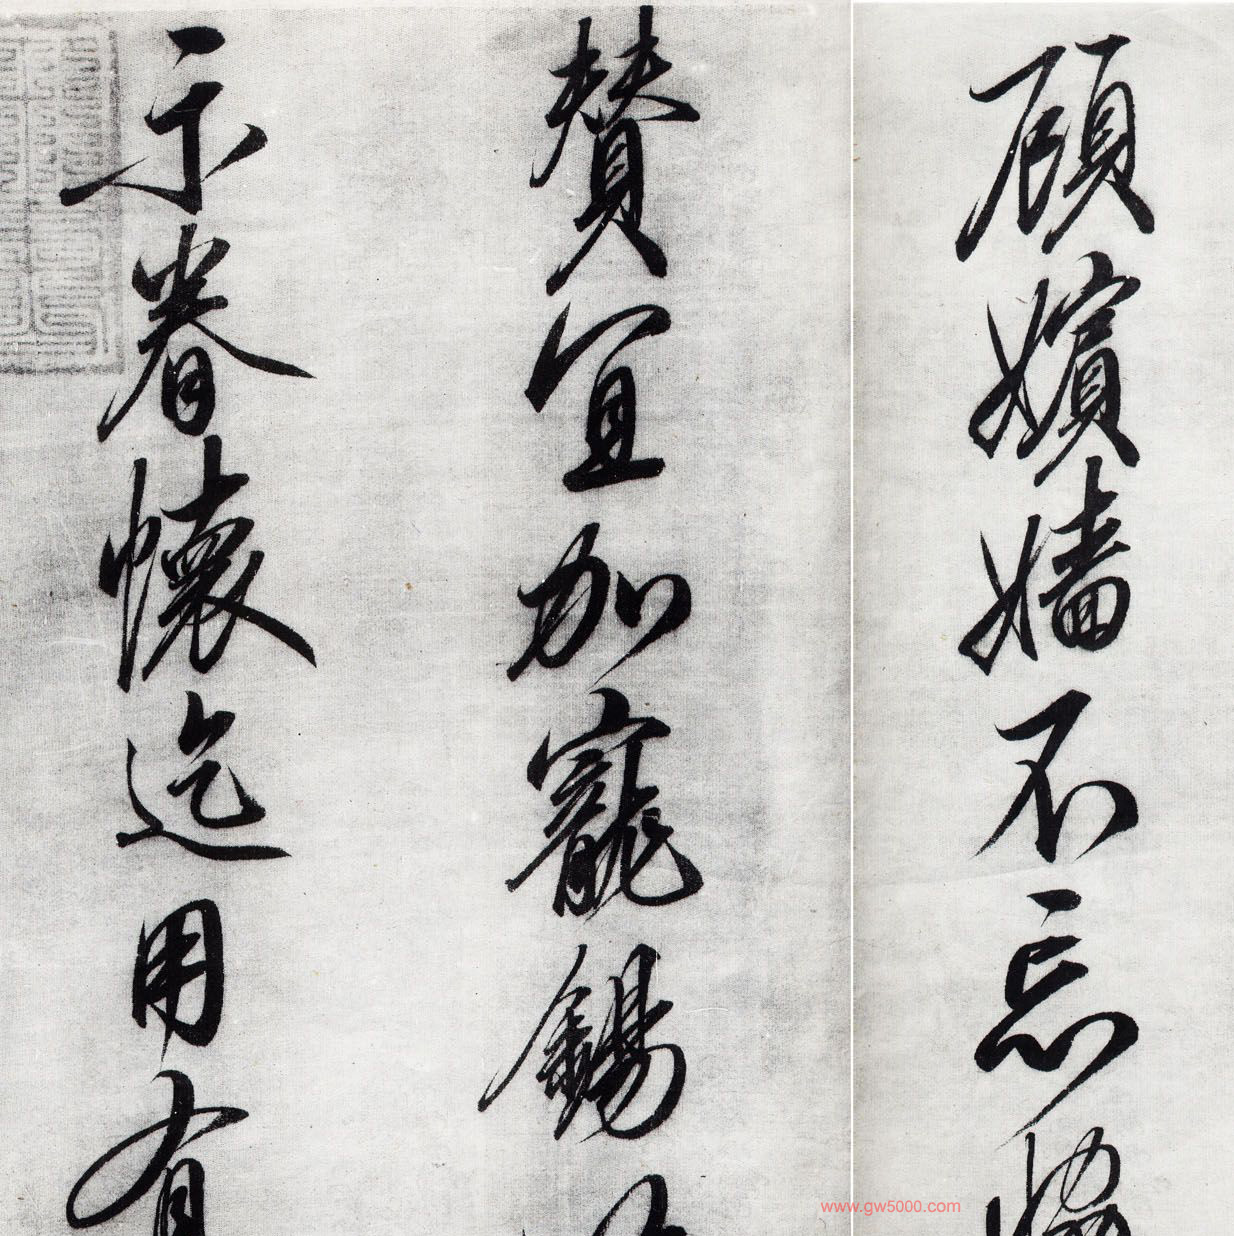 顧嬪嬙不忘
贊宜加寵錫
示眷懷迄用有
www.gw5000.com